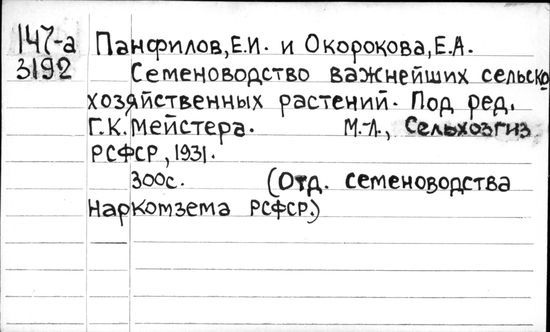 147-а Панфилов, Е.И. и Окорокова, Е.А.
3192 Семеноводство важнейших сельско
хозяйственных растений. Под ред.
Г.К. Мейстера. М.-Л., Сельхозгиз
РСФСР, 1931.
300с. (Отд. семеноводства
Наркомзема РСФСР.)